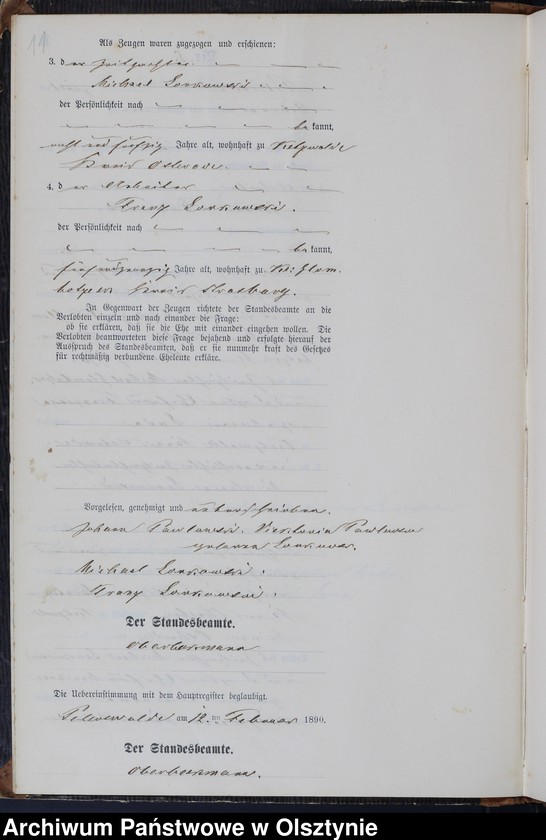 11
Als Zeugen waren zugezogen und erschienen:
3. der Zeitpächter
Michael Lonkowski
der Persönlichkeit nach
bekannt,
acht und fünfzig Jahre alt, wohnhaft zu
Kreis Osterode.
4. der Arbeiter
Franz Lonkowski.
der Persönlichkeit nach
bekannt,
fünf und zwanzig Jahre alt, wohnhaft zu
Kreis Strasburg.
In Gegenwart der Zeugen richtete der Standesbeamte an die
Verlobten einzeln und nach einander die Frage:
ob sie erklären, daß sie die Ehe mit einander eingehen wollen. Die
Verlobten beantworteten diese Frage bejahend und erfolgte hierauf der
Ausspruch des Standesbeamten, daß er sie nunmehr kraft des Gesetzes
für rechtmäßig verbundene Eheleute erkläre.
Vorgelesen, genehmigt und unterschrieben.
Johann Pawlowski. Viktoria Pawlowski
geborene
Michael Lonkowski.
Franz Lonkowski.
Der Standesbeamte.
Die Uebereinstimmung mit dem Hauptregister beglaubigt.
am 12. ten Februar 1890.
Der Standesbeamte.
Archiwum Państwowe w Olsztynie